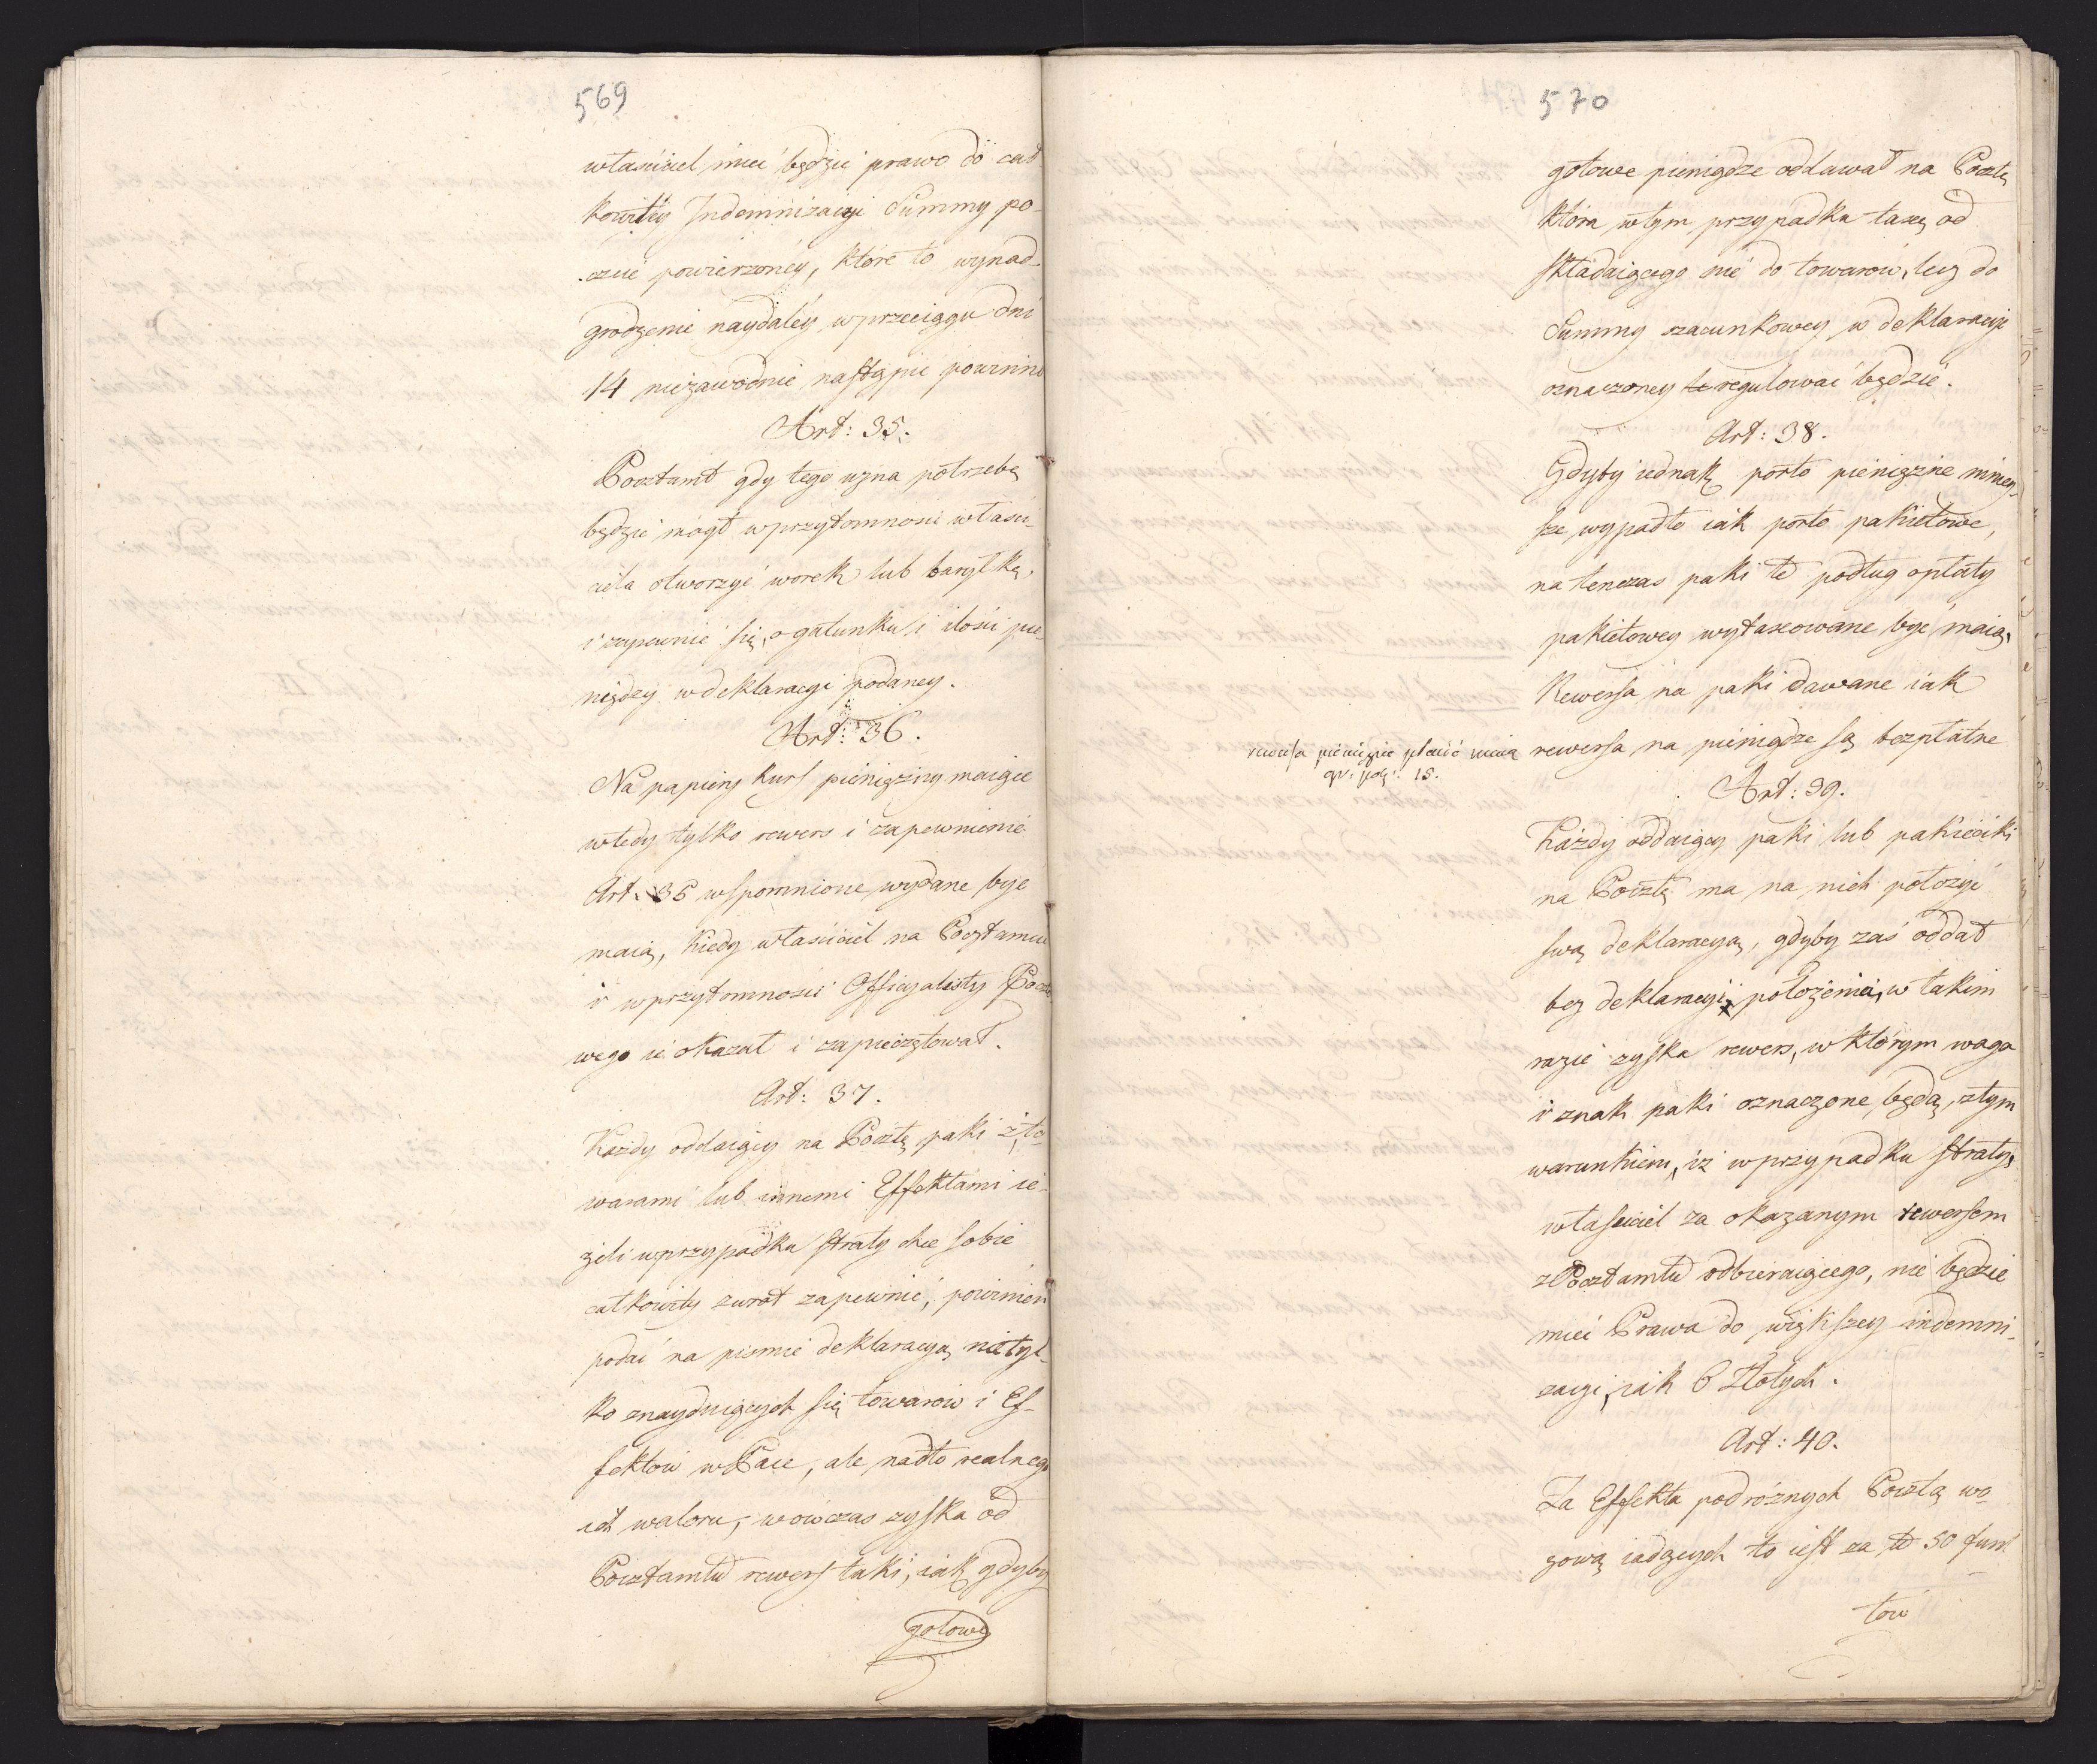 569
własciciel mieć będzie prawo do cał
kowitey Indemnizacyi Summy po-
czcie powierzoney, które to wynad-
grodzenie naydaléy w przeciągu dni
14 niezawodnie nastąpić powinno
Art: 35.
Pocztamt gdy tego uzna potrzebę
będzie mógł w przytomnosci własci-
ciela otworzyć worek lub baryłkę,
i zapewnić się o gatunku i ilosci pie-
niędzy w deklaracyi podaney.
Art: 36.
Na papiery kurs pieniężny maiące
wtedy tylko rewers i zapewnienie
Art: 35 wspomnione wydane być
maią, kiedy własciciel na Pocztamcie
i w przytomnosci Officyalisty Poczto
wego ie okazał i zapieczętował.
Art: 37.
Każdy oddaiący na Pocztę paki z to-
warami lub innemi Effektami ie-
żeli w przypadku straty chce sobie
całkowity zwrot zapewnić, powinien
podać na pismie deklaracyą nietyl-
ko znayduiących się towarów i Ef-
fektów w Pace, ale nadto realnego
ich waloru, wówczas zyska od
Pocztamtu rewers taki, iak gdyby
gotowe
570
gotowe pieniądze oddawał na Pocztę
która w tym przypadku taxę od
składaiącego nie do towarów, lecz do
Summy szacunkowey w deklaracyi
oznaczoney regulować będzie.
Art: 38.
Gdyby iednak porto pieniężne mniey-
sze wypadło iak porto pakietowe,
na tenczas paki te podług opłaty
pakietowey wytaxowane być maią,
Rewersa na paki dawane iak
rewersa na pieniądze są bezpłatne
rewersa pieniężne płacić maią
gr: pol: 15.
Art: 39.
Każdy oddaiący paki lub pakieciki
na Pocztę ma na nich położyć
swą deklaracyą, gdyby zaś oddał
bez deklaracyi położenia, w takim
razie zyska rewers, w którym waga
i znak paki oznaczone będą, z tym
warunkiem, iż w przypadku straty,
własciciel za okazanym rewersem
z Pocztamtu odbieraiącego, nie będzie
mieć Prawa do większey indemni-
zacyi, iak 6 Złotych.
Art: 40.
Za Effekta podróżnych Pocztą wo-
zową iadących to iest za te 50 fun-
tów